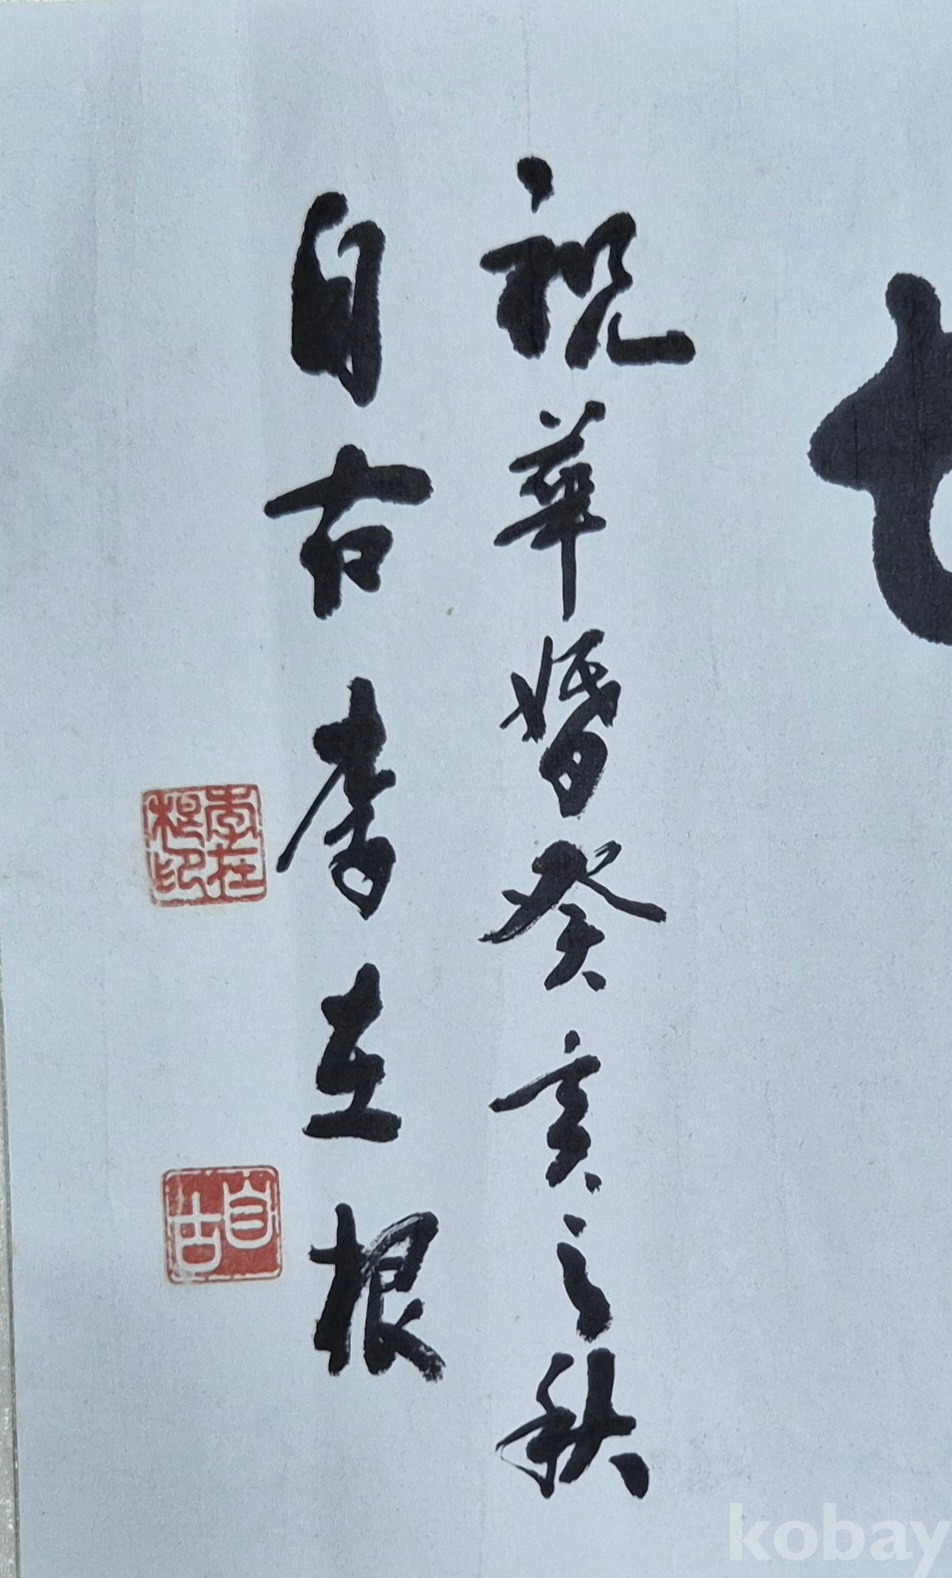 祝華婚癸亥之秋
自古 李在根
李在根印
自古
kobay